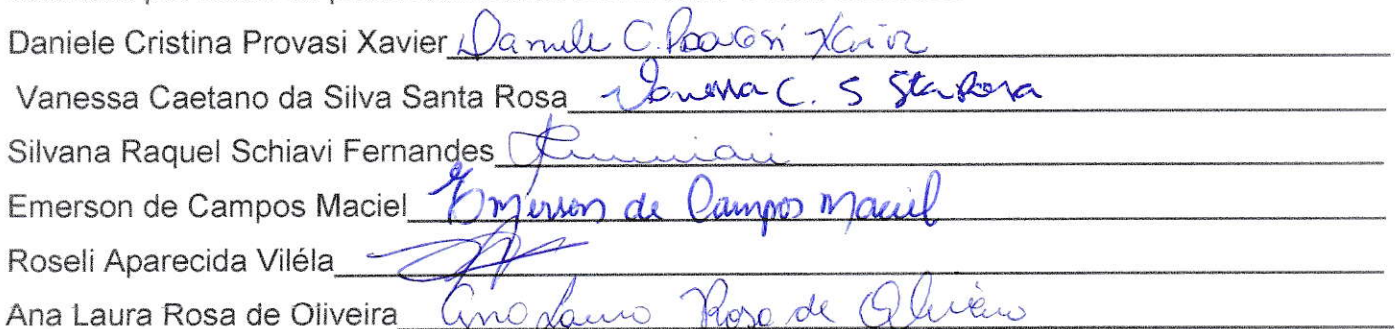 Daniele Cristina Provasi Xavier Daniele C. Provasi Xavier
Vanessa Caetano da Silva Santa Rosa Vanessa C. S Sta Rosa
Silvana Raquel Schiavi Fernandes
Emerson de Campos Maciel Emerson de Campos Maciel
Roseli Aparecida Viléla
Ana Laura Rosa de Oliveira Ana Laura Rosa de Oliveira